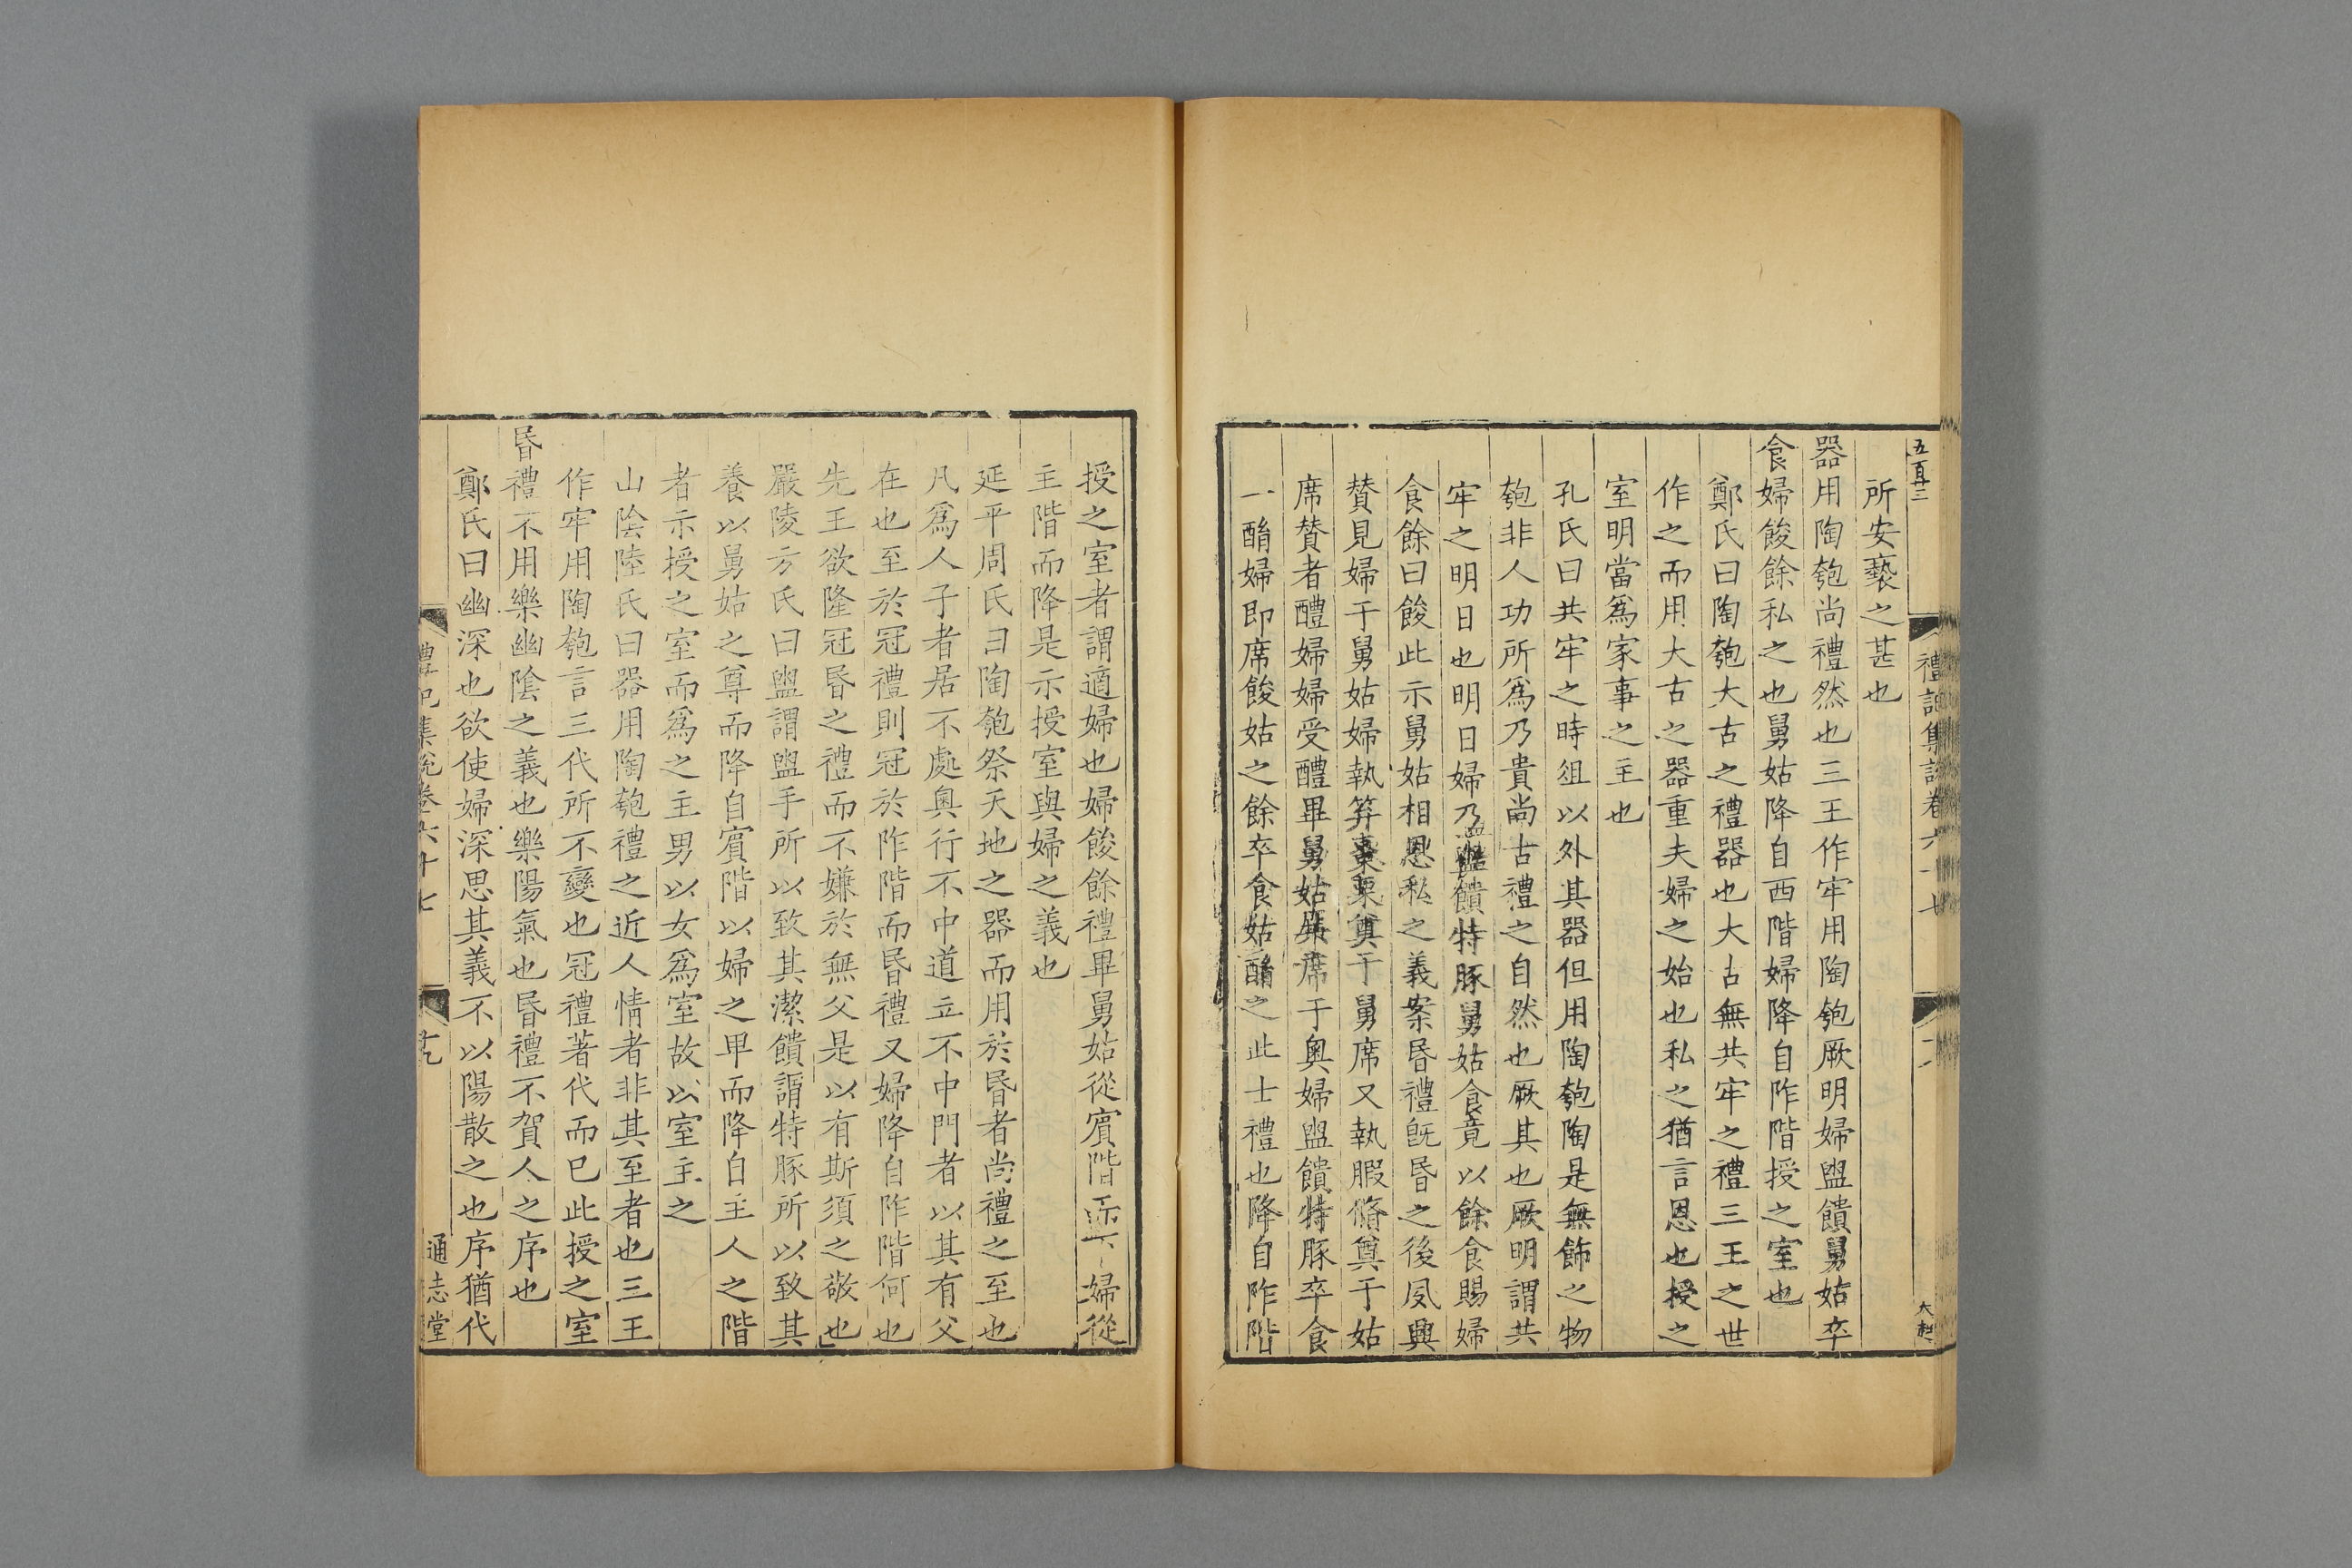 五百廿三
禮記集說卷六十七
所安褻之甚也
器用陶匏尚禮然也三王作牢用陶匏厥明婦盥饋舅姑卒
食婦餕餘私之也舅姑降自西階婦降自阼階授之室也
鄭氏曰陶匏大古之禮器也大古無共牢之禮三王之世
作之而用大古之器重夫婦之始也私之猶言恩也授之
室明當爲家事之主也
孔氏曰共牢之時俎以外其器但用陶匏陶是無飾之物
匏非人功所爲乃貴尚古禮之自然也厥其也厥明謂共
牢之明日也明日婦乃盥饋特豚舅姑食竟以餘食賜婦
食餘曰餕此示舅姑相恩私之義案昏禮旣昏之後夙興
賛見婦于舅姑婦執笲棗栗奠于舅席又執腶脩奠于姑
席賛者醴婦婦受醴畢舅姑席于奧婦盥饋特豚卒食
一酳婦即席餕姑之餘卒食姑酳之此士禮也降自阼階
授之室者謂適婦也婦餕餘禮畢舅姑從賓階而下婦從
主階而降是示授室與婦之義也
延平周氏曰陶匏祭天地之器而用於昏者尚禮之至也
凡爲人子者居不處奧行不中道立不中門者以其有父
在也至於冠禮則冠於阼階而昏禮又婦降自阼階何也
先王欲隆冠昏之禮而不嫌於無父是以有斯須之敬也
嚴陵方氏曰盥謂盥手所以致其潔饋謂特豚所以致其
養以舅姑之尊而降自賓階以婦之卑而降自主人之階
者示授之室而爲之主男以女爲室故以室主之
山陰陸氏曰器用陶匏禮之近人情者非其至者也三王
作牢用陶匏言三代所不變也冠禮著代而已此授之室
昏禮不用樂幽陰之義也樂陽氣也昏禮不賀人之序也
鄭氏曰幽深也欲使婦深思其義不以陽散之也序猶代
禮記集說卷六十七
廿九
通志堂